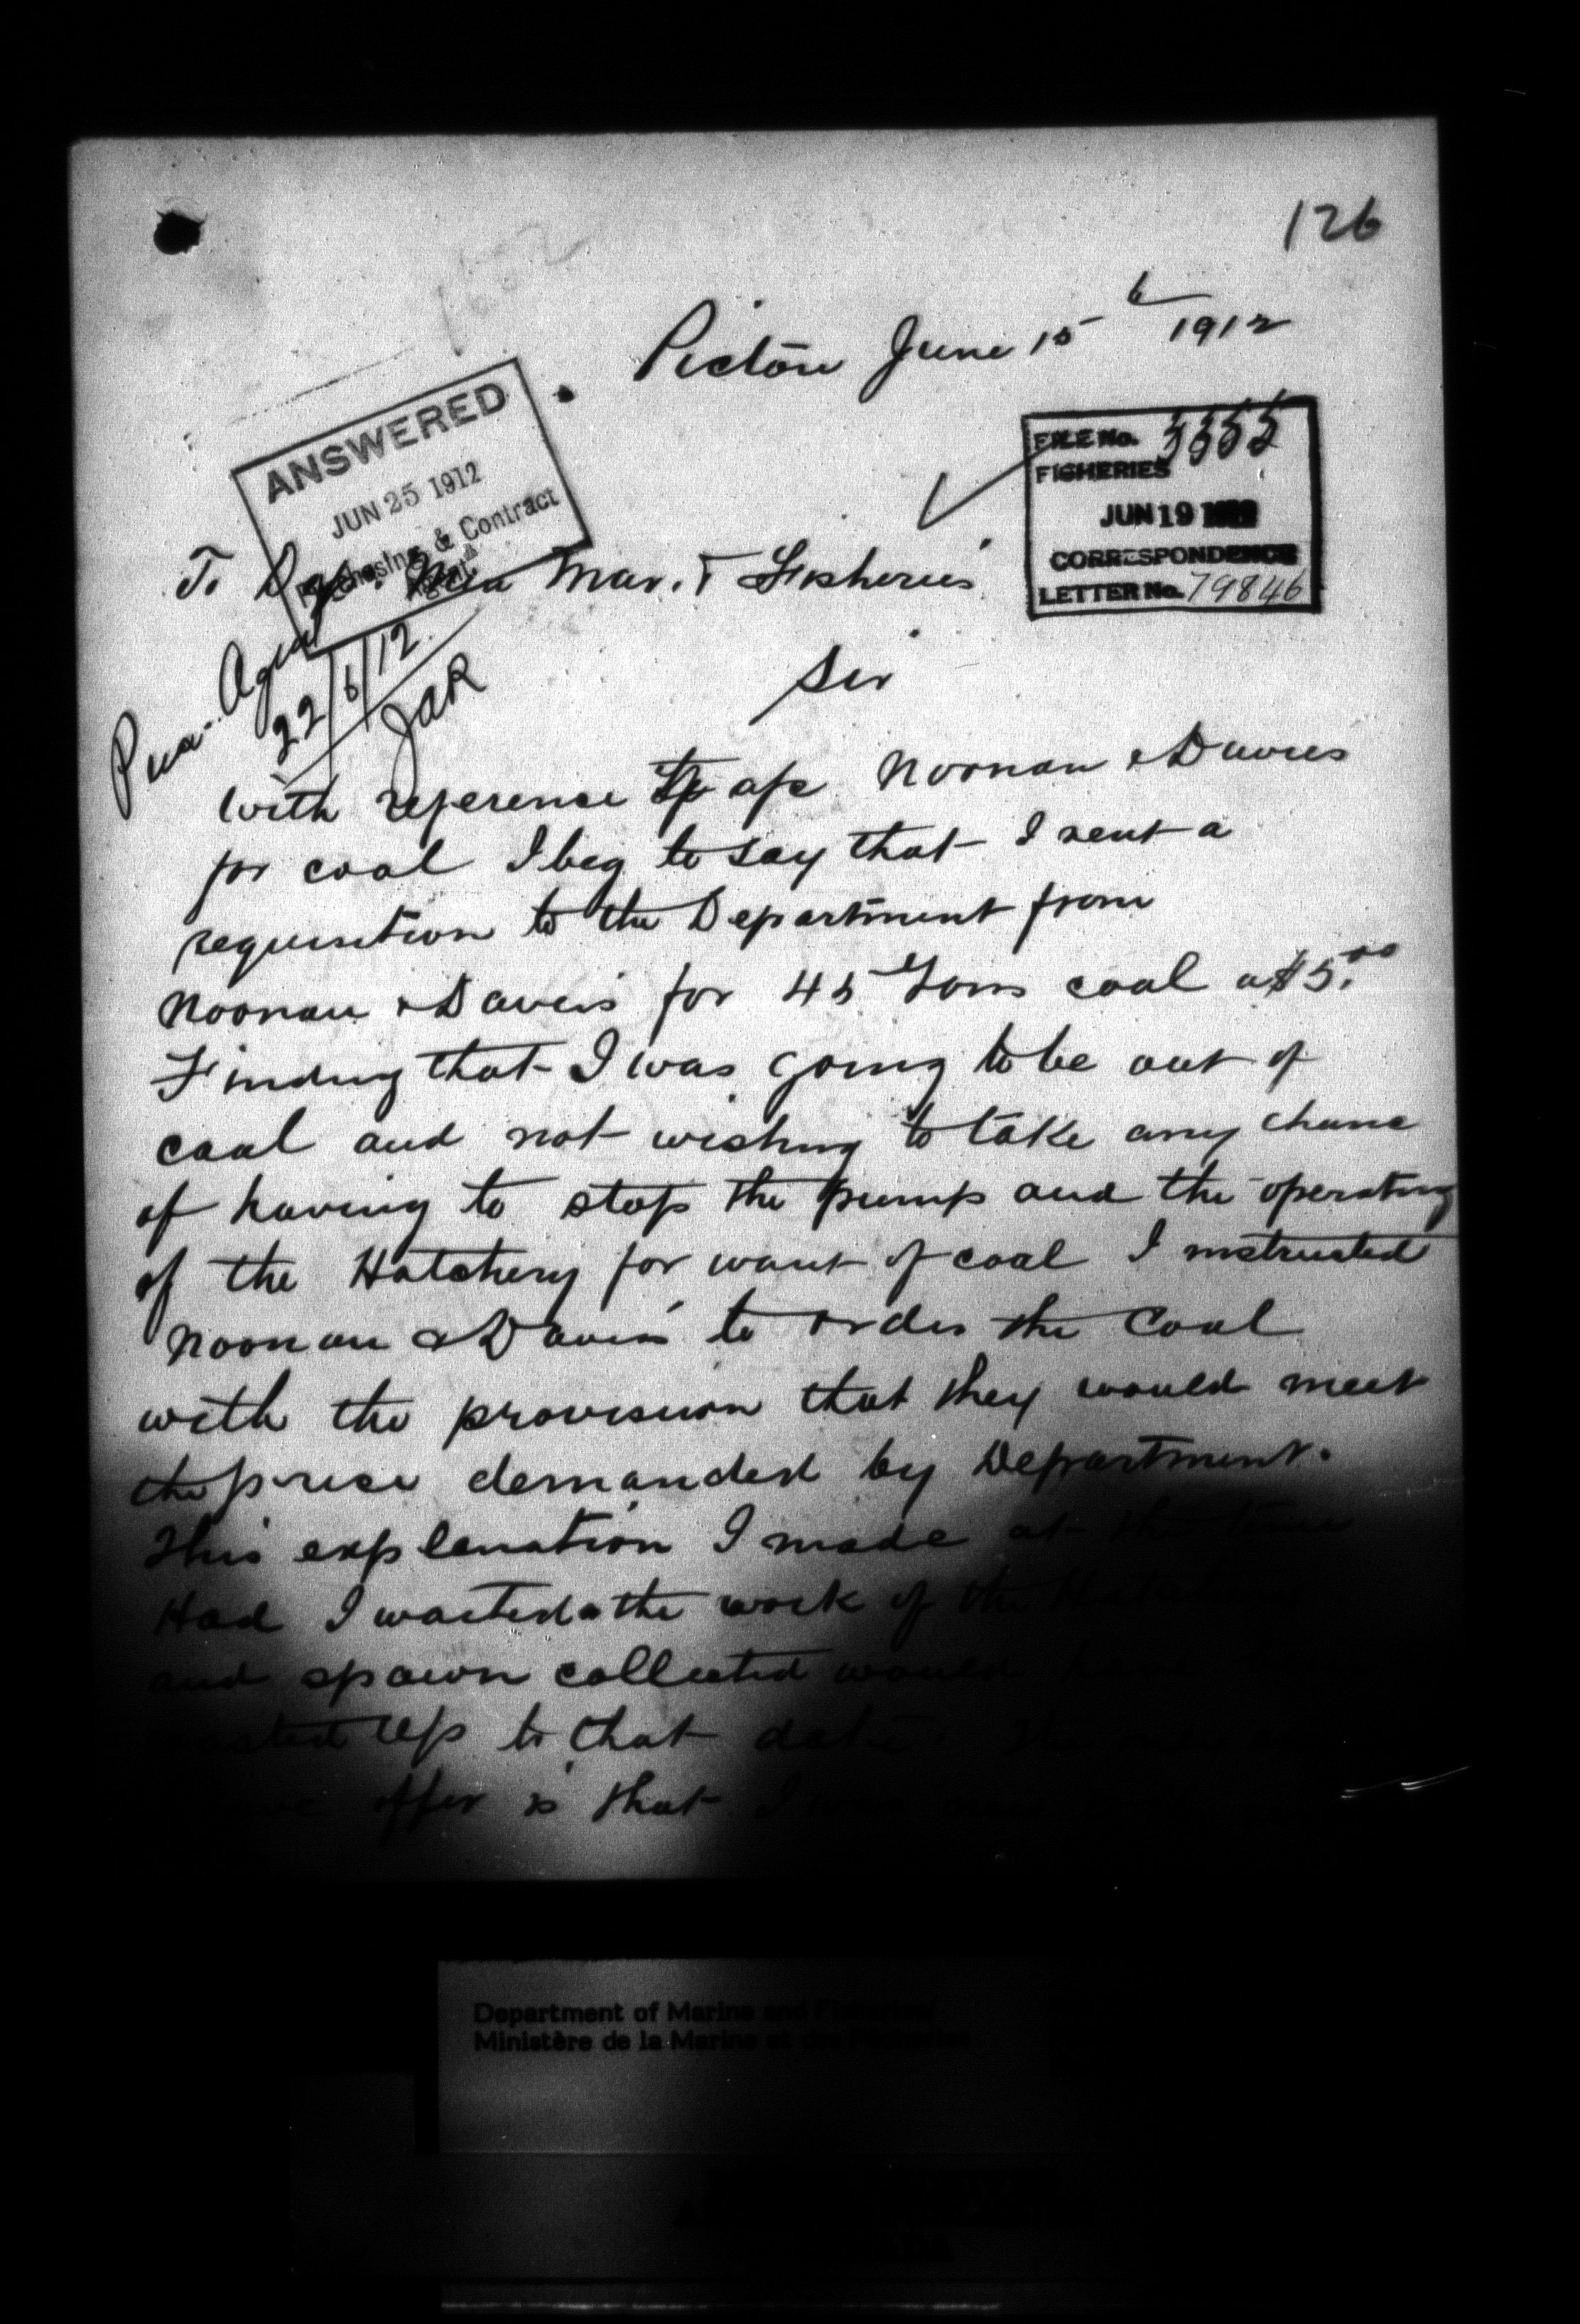 126
Picton June 15 1912
ANSWERED
JUN 25 1912
Purchasing & Contract
Agent
FILE No. 3355
FISHERIES
JUN 19
CORRESPONDENCE
LETTER No. 79846
To Mar. & Fisheries
22/6/12
JAR
Sir
With reference to a/c Noonan & Davies
for coal I beg to say that I sent a
requisition to the Department from
Noonan & Daveis for 45 Tons coal a $5.00
Finding that I was going to be out of
coal and not wishing to take any chance
of having to stop the pump and the operating
of the Hatchery for want of coal I instructed
Noonan & Davis to order the Coal
with the provision that they would meet
the price demanded by Department.
This explenation I made at the time
Had I waited the work of the
and spawn collected would
up to that date.
offer is that I
Department of Marine and Fisheries/
Ministère de la Marine et des Pêcheries